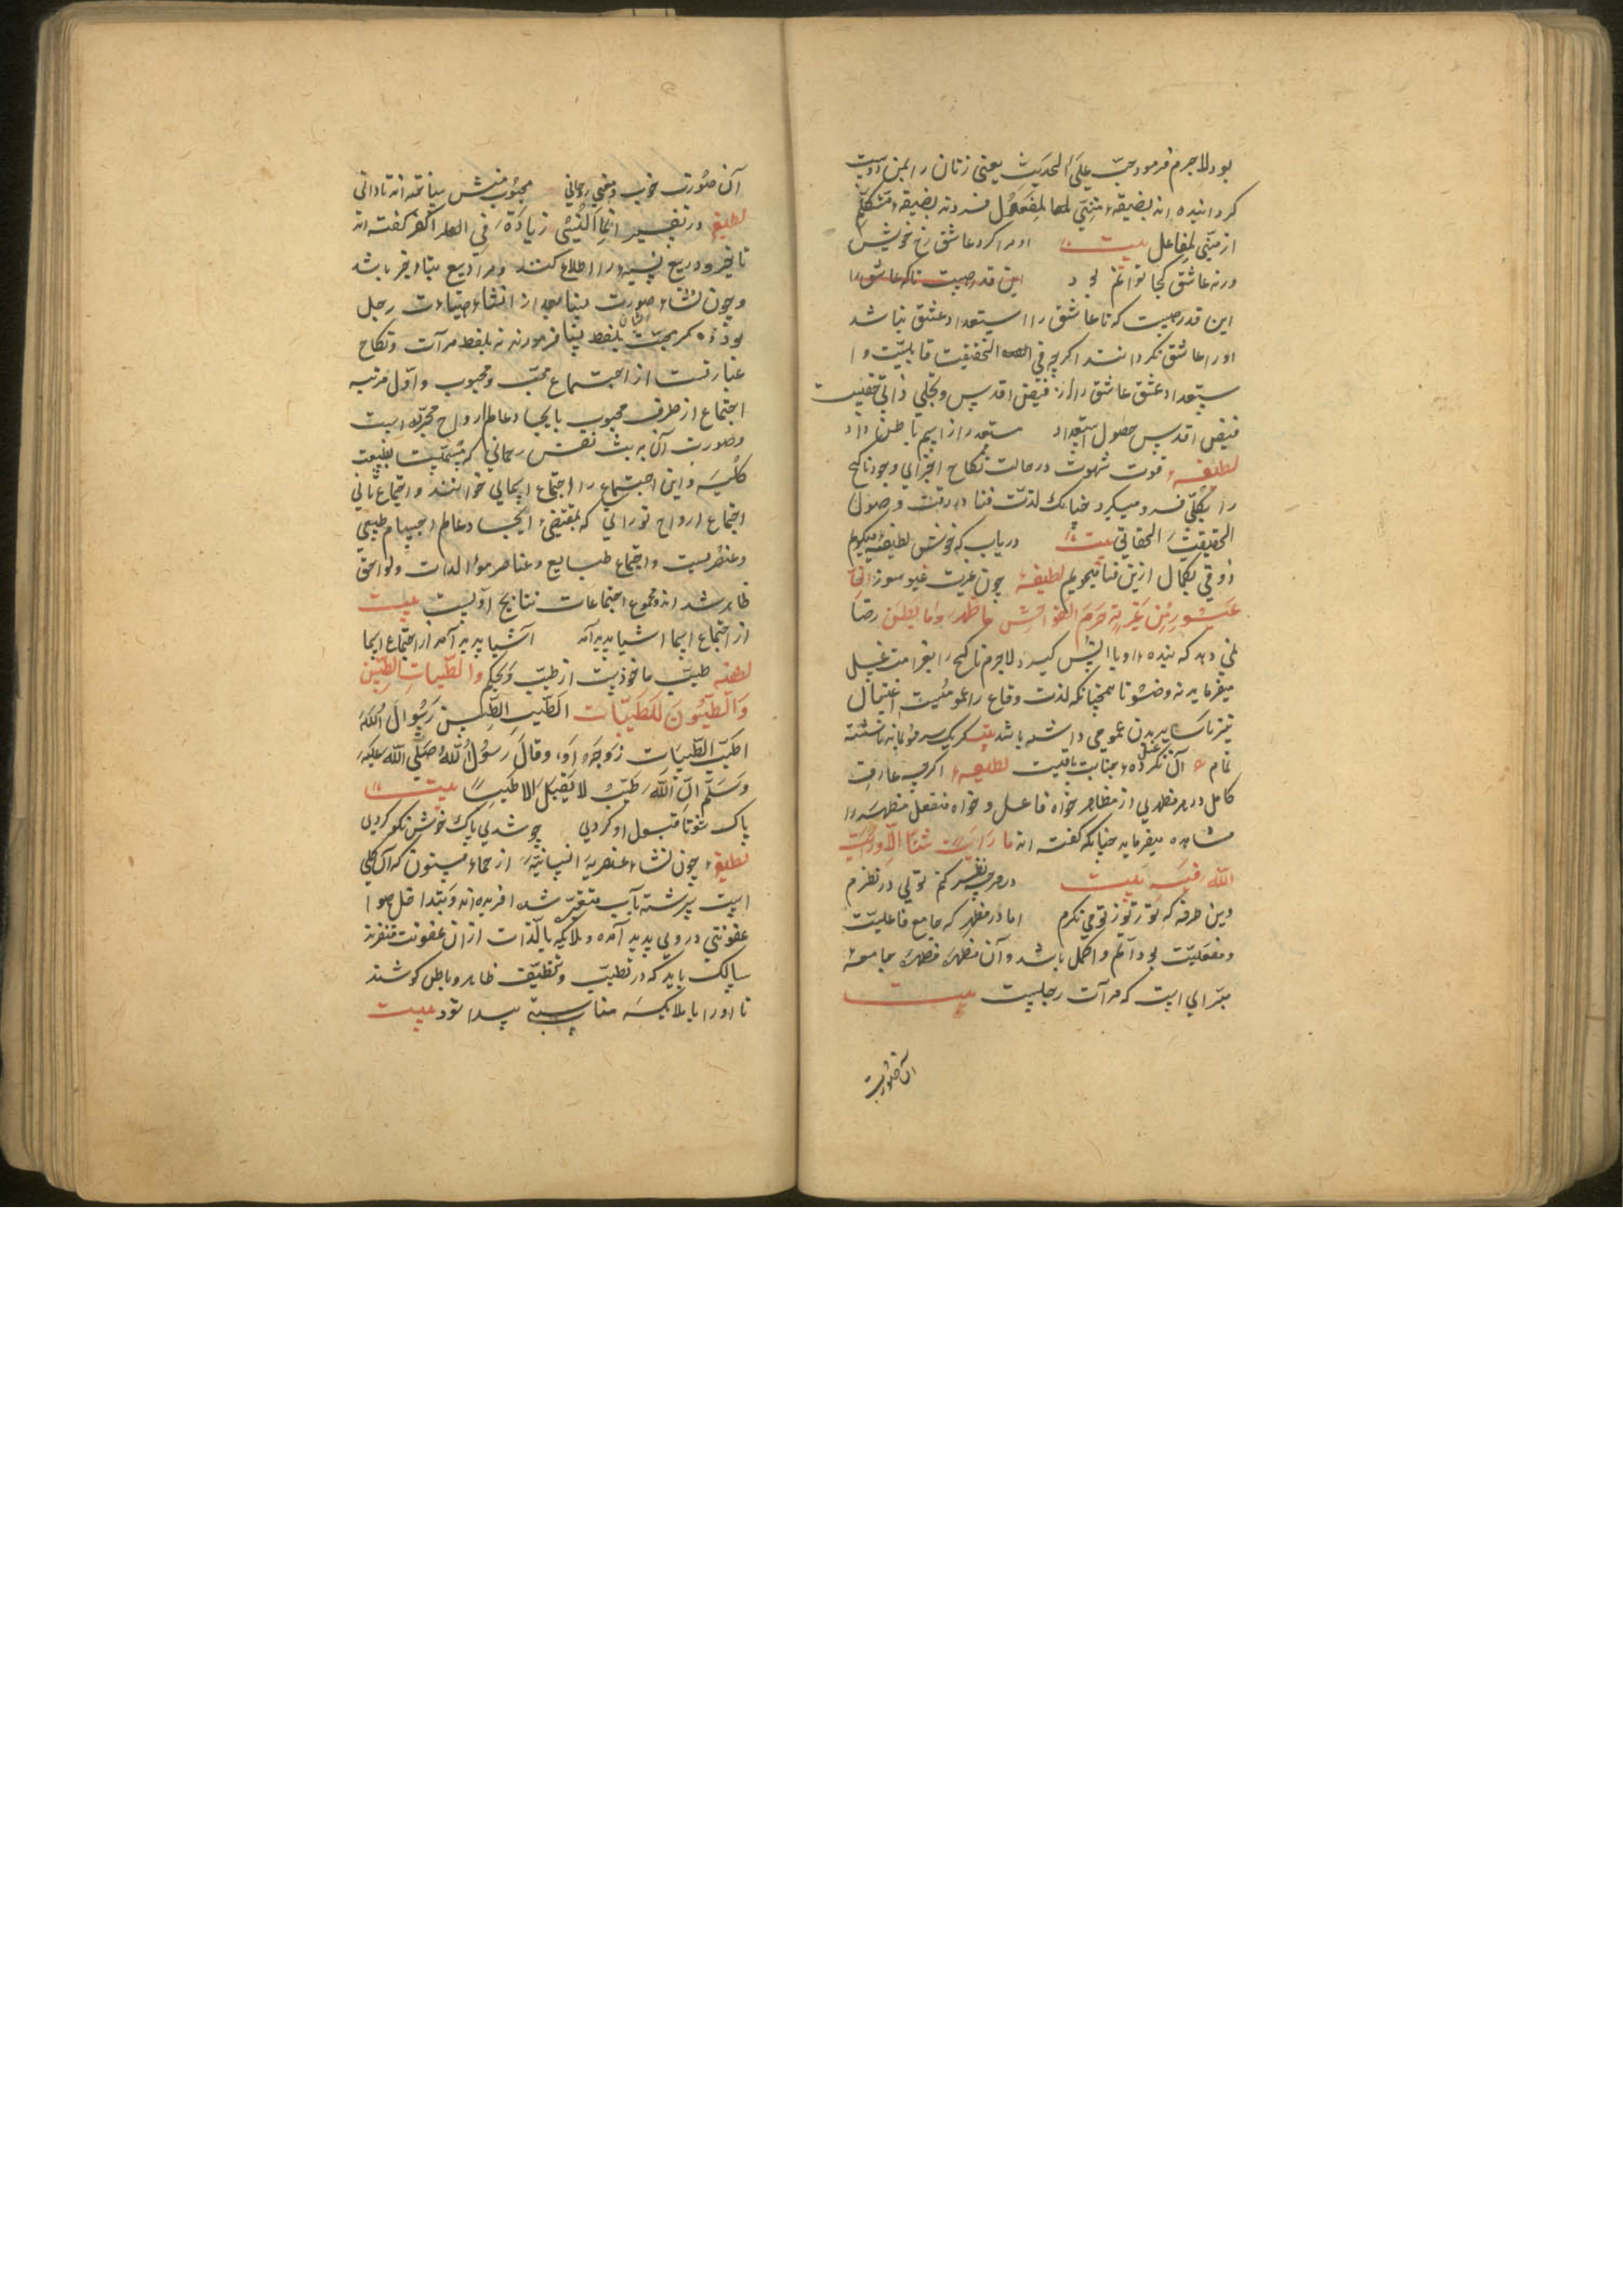 بود لاجرم فرمود حبّب علیّ الحدیث یعنی زنان را بمن دوست
کردانیده اند بضیغهٔ مبنی لما لمفعول نه بضیغهٔ متکلّم
از مبنی لفاعل بیت او مرا کرد عاشق رخ خویش
ورنه عاشق کجا توانم بود این قدر چیست تا که عاشق را
این قدر چیست که تا عاشق را استعداد عشق نباشد
او را عاشق نکردانند اکرچه فی التحقیقت قابلیّت و ا
ستعداد عشق عاشق را از فیض اقدس و تجلّی ذاتی حقیست
فیض اقدس حصول استعداد مستعد را ز اسم باطن داد
لطیفه قوت شهوت در حالت نکاح اجزای وجود ناکح
را بکلّی فرو میکیرد چنانک لذّت فنا در وقت وصول
الحقیقت الحقانی بیت دریاب که خوش لطیفهٔ میکویم
ذوقی بکمال ازین فنا میجویم لطیفه چون غیرت غیور سوز
غیور من غیرته حرّم الفواحش ما ظهر وما بطن رضا
نمی دهد که بنده با او یا انس کیرد لاجرم ناکح را بغرامت غسل
میفرماید نه وضو تا همچنانکه لذت وقاع را عمومیست اغتسال
نیز بسایر بدن عمومی داشته باشد بیت کر یک سر مو بماند ناشسته
تمام آن غسل نکرده جنابت باقیست لطیفه اکرچه عارف
کامل در هر مظهری از مظاهر خواه فاعل و خواه منفعل مظهر را
مشاهده میفرماید چنانکه کفته اند ما رایت شیئا الّا ورایت
الله فیه بیت در هرچه نظر کنم تویی در نظرم
وین طرفه که تو ز تو می نکرم اما در مظهر که جامع فاعلیّت
و مفعلیّت بود اتم و اکمل باشد و آن مظهر مظهر جامعهٔ
است که مرآت رجلیست بیت
آن صورت
آن صورت خوب و معنی روحانی محبوب منش ساخته اند تا دانی
لطیفه در تفسیر انما النسیٔ زیادة فی الکفر کفته اند
تاخیر و در بیع نسیه را اطلاع کنند و مراد بیع بتاخیر باشد
و چون نشاء صورت نسا بعد از انشاء رجل
بوذه کر بجهت بلفظ نسا فرمودند نه بلفظ مرآت و نکاح
عبارتست از اجتماع محبّ و محبوب و اوّل مرتبه
اجتماع از طرف محبوب بایجاد عالم ارواح مجرّده است
و صورت آن به بث نفس رحمانی که مسمّیست بطبیعت
کلّیه و این اجتماع را اجتماع خوانند و اجتماع ثانی
اجتماع ارواح نورانی که بمقتضیٔ ایجاد عالم اجسام طبیعی
و عنصریست و اجتماع طبایع و عناصر موالدات و لواحق
ظاهر شد اند و مجموع اجتماعات نتایج اوّلیست بیت
از اجتماع اسما اشیا پدید آمد اشیا پدید آمد از اجتماع اسما
لطیفه طیب ماخوذیست از طیّب و یحکم والطّیبات للطّیّبین
والطّیّبون للطّیّبات الطّیب الطّیبین رسول الله
اطیّب الطّیبات زوجه او، وقال رسول الله صلّی الله علیه
وسلّم انّ الله طیّب لا یقبل الا طیباً بیت
پاک شو تا قبول او کردی چو شدی پاک خوش نکو کردی
لطیفه چون نشاء عنصریهٔ انسانیّه از حماء مسنون که آن کلی
است سرشته بآب متغیّر شده افریده اند و
عفونتی در وی پدید آمده و ملایکه بالذّات از ان عفونت متنفرند
سالک باید که در تطیّب و تنظیف ظاهر و باطن کوشند
تا او را با ملایکه مناسبتی پیدا شود بیت